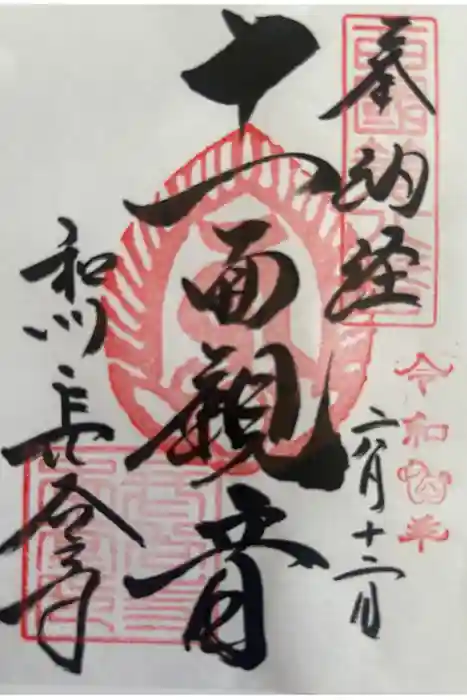 奉納経
令和四年
六月十二日
十一面観音
和州 長谷寺